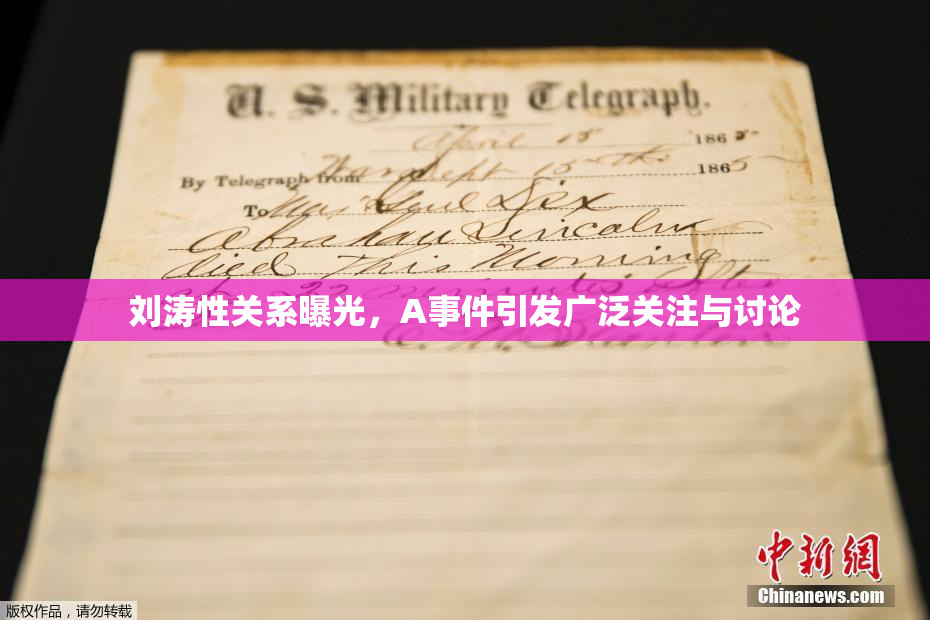 U. S. Military Telegraph.
April 15 1865
By Telegraph from War Dept 15th 1865
To Maj Genl Dix
Abraham Lincoln
died This Morning
22 minutes after
刘涛性关系曝光，A事件引发广泛关注与讨论
中新网
Chinanews.com
版权作品，请勿转载